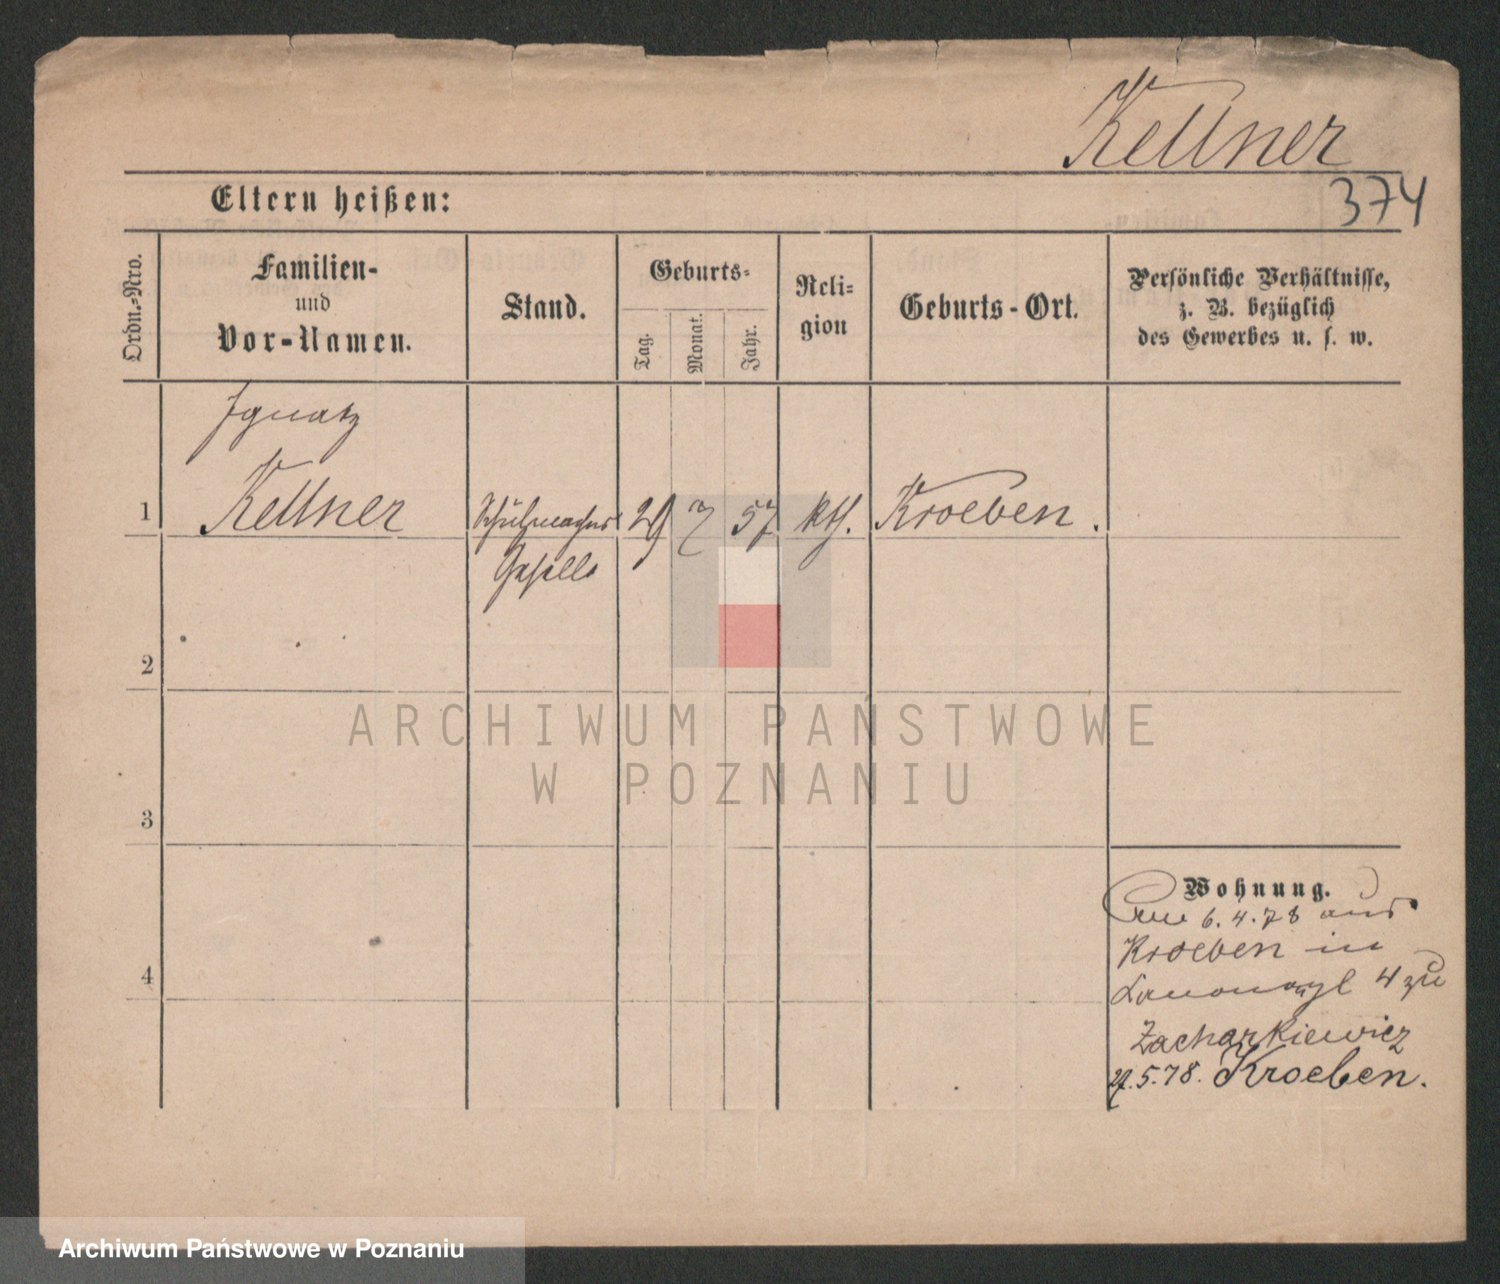 Kellner
374
Eltern heißen:
Ordn.-Nro.
Familien-
und
Vor-Namen.
Stand.
Geburts-
Tag.
Monat.
Jahr.
Reli-
gion
Geburts-Ort.
Persönliche Verhältnisse,
z. B. bezüglich
des Gewerbes u. s. w.
Ignatz
1 Kellner Schuhmacher 29 7 57 kth. Kroeben.
Geselle
2
3
4
Wohnung.
6.4.78 aus
Kroeben in
4 zu
Zacharkiewicz
29.5.78. Kroeben.
ARCHIWUM PAŃSTWOWE
W POZNANIU
Archiwum Państwowe w Poznaniu